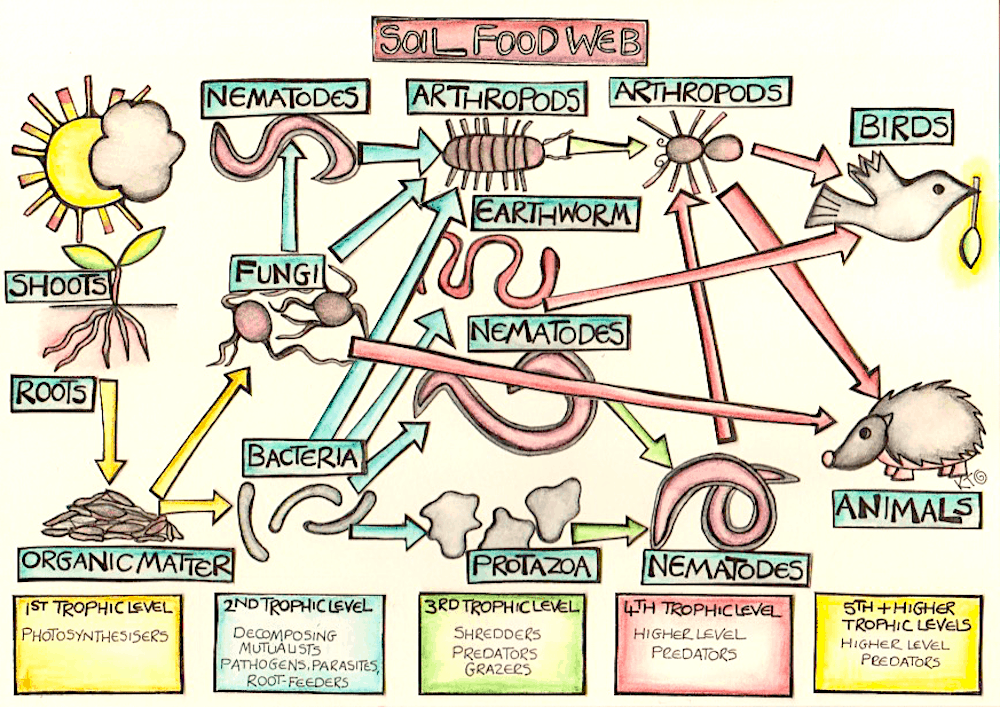 SOIL FOOD WEB
NEMATODES
ARTHROPODS
ARTHROPODS
BIRDS
EARTHWORM
SHOOTS
FUNGI
NEMATODES
ROOTS
BACTERIA
ANIMALS
ORGANIC MATTER
PROTAZOA
NEMATODES
1ST TROPHIC LEVEL
PHOTOSYNTHESISERS
2ND TROPHIC LEVEL
DECOMPOSING
MUTUALISTS
PATHOGENS, PARASITES,
ROOT-FEEDERS
3RD TROPHIC LEVEL
SHREDDERS
PREDATORS
GRAZERS
4TH TROPHIC LEVEL
HIGHER LEVEL
PREDATORS
5TH + HIGHER
TROPHIC LEVELS
HIGHER LEVEL
PREDATORS